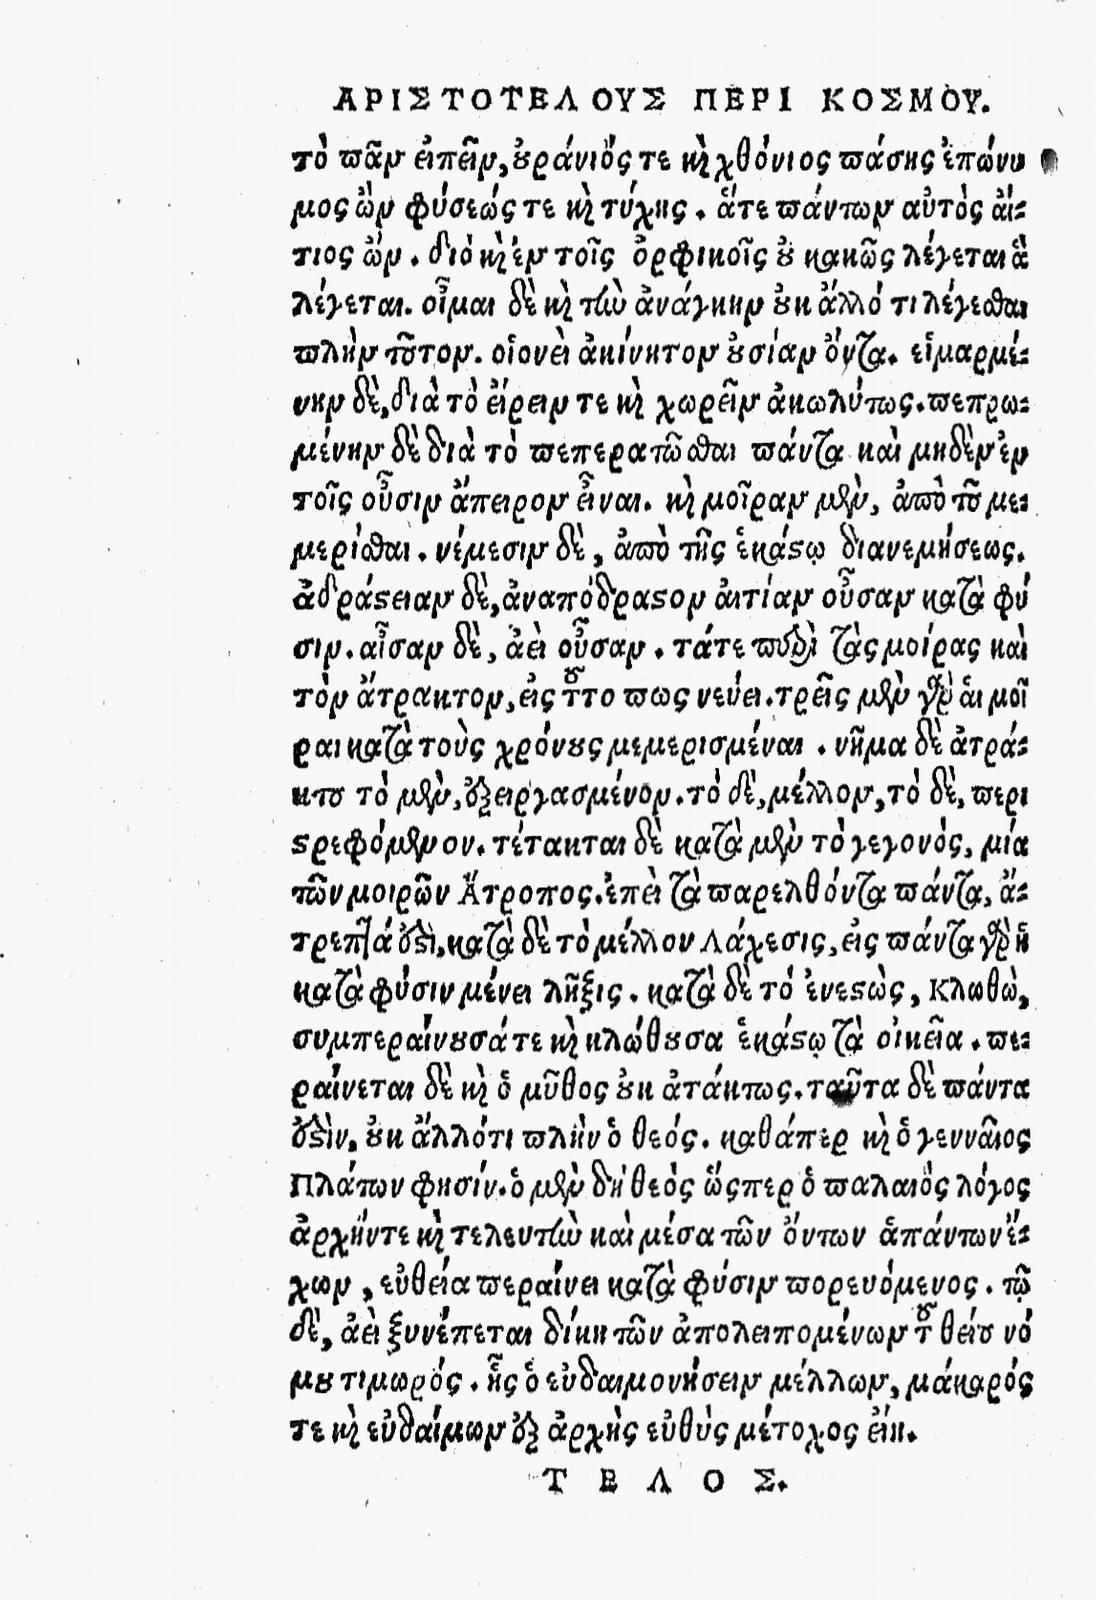 ΑΡΙΣΤΟΤΕΛΟΥΣ ΠΕΡΙ ΚΟΣΜΟΥ.
τὸ πᾶν εἰπεῖν, οὐράνιός τε καὶ χθόνιος πάσης ἐπώνυ
μος ὢν φύσεώς τε καὶ τύχης. ἅτε πάντων αὐτὸς αἴ-
τιος ὤν. διὸ καὶ ἐν τοῖς ὀρφικοῖς οὐ κακῶς λέγεται ἃ
λέγεται. οἶμαι δὲ καὶ τὴν ἀνάγκην οὐκ ἄλλό τι λέγεσθαι
πλὴν τοῦτον. οἱονεὶ ἀκίνητον οὐσίαν ὄντα. εἱμαρμέ-
νην δὲ, διὰ τὸ εἴρειν τε καὶ χωρεῖν ἀκωλύτως. πεπρω-
μένην δὲ διὰ τὸ πεπερατῶσθαι πάντα καὶ μηδὲν ἐν
τοῖς οὖσιν ἄπειρον εἶναι. καὶ μοῖραν μὲν, ἀπὸ τοῦ με-
μερίσθαι. νέμεσιν δὲ, ἀπὸ τῆς ἑκάστῳ διανεμήσεως.
ἀδράστειαν δὲ, ἀναπόδραστον αἰτίαν οὖσαν κατὰ φύ
σιν. αἶσαν δὲ, ἀεὶ οὖσαν. τάτε περὶ τὰς μοίρας καὶ
τὸν ἄτρακτον, εἰς τοῦτο πως νεύει. τρεῖς μὲν γὰρ αἱ μοῖ
ραι κατὰ τοὺς χρόνους μεμερισμέναι. νῆμα δὲ ἀτρά-
κτου τὸ μὲν, ἐξειργασμένον. τὸ δὲ, μέλλον, τὸ δὲ, περι
στρεφόμενον. τέτακται δὲ κατὰ μὲν τὸ γεγονός, μία
τῶν μοιρῶν Ἄτροπος. ἐπεὶ τὰ παρελθόντα πάντα, ἄ-
τρεπτά ἐστι, κατὰ δὲ τὸ μέλλον Λάχεσις, εἰς πάντα γὰρ ἡ
κατὰ φύσιν μένει λῆξις. κατὰ δὲ τὸ ἐνεστὼς, Κλωθὼ,
συμπεραίνουσά τε καὶ κλώθουσα ἑκάστῳ τὰ οἰκεῖα. πε-
ραίνεται δὲ καὶ ὁ μῦθος οὐκ ἀτάκτως. ταῦτα δὲ πάντα
ἐστὶν, οὐκ ἄλλότι πλὴν ὁ θεός. καθάπερ καὶ ὁ γενναῖος
Πλάτων φησίν. ὁ μὲν δὴ θεὸς ὥσπερ ὁ παλαιὸς λόγος
ἀρχήντε καὶ τελευτὴν καὶ μέσα τῶν ὄντων ἁπάντων ἔ-
χων, εὐθεία περαίνει κατὰ φύσιν πορευόμενος. τῷ
δὲ, ἀεὶ ξυνέπεται δίκη τῶν ἀπολειπομένων τοῦ θείου νό
μου τιμωρός. ἧς ὁ εὐδαιμονήσειν μέλλων, μάκαρός
τε καὶ εὐδαίμων ἐξ ἀρχῆς εὐθὺς μέτοχος εἴη.
ΤΕΛΟΣ.